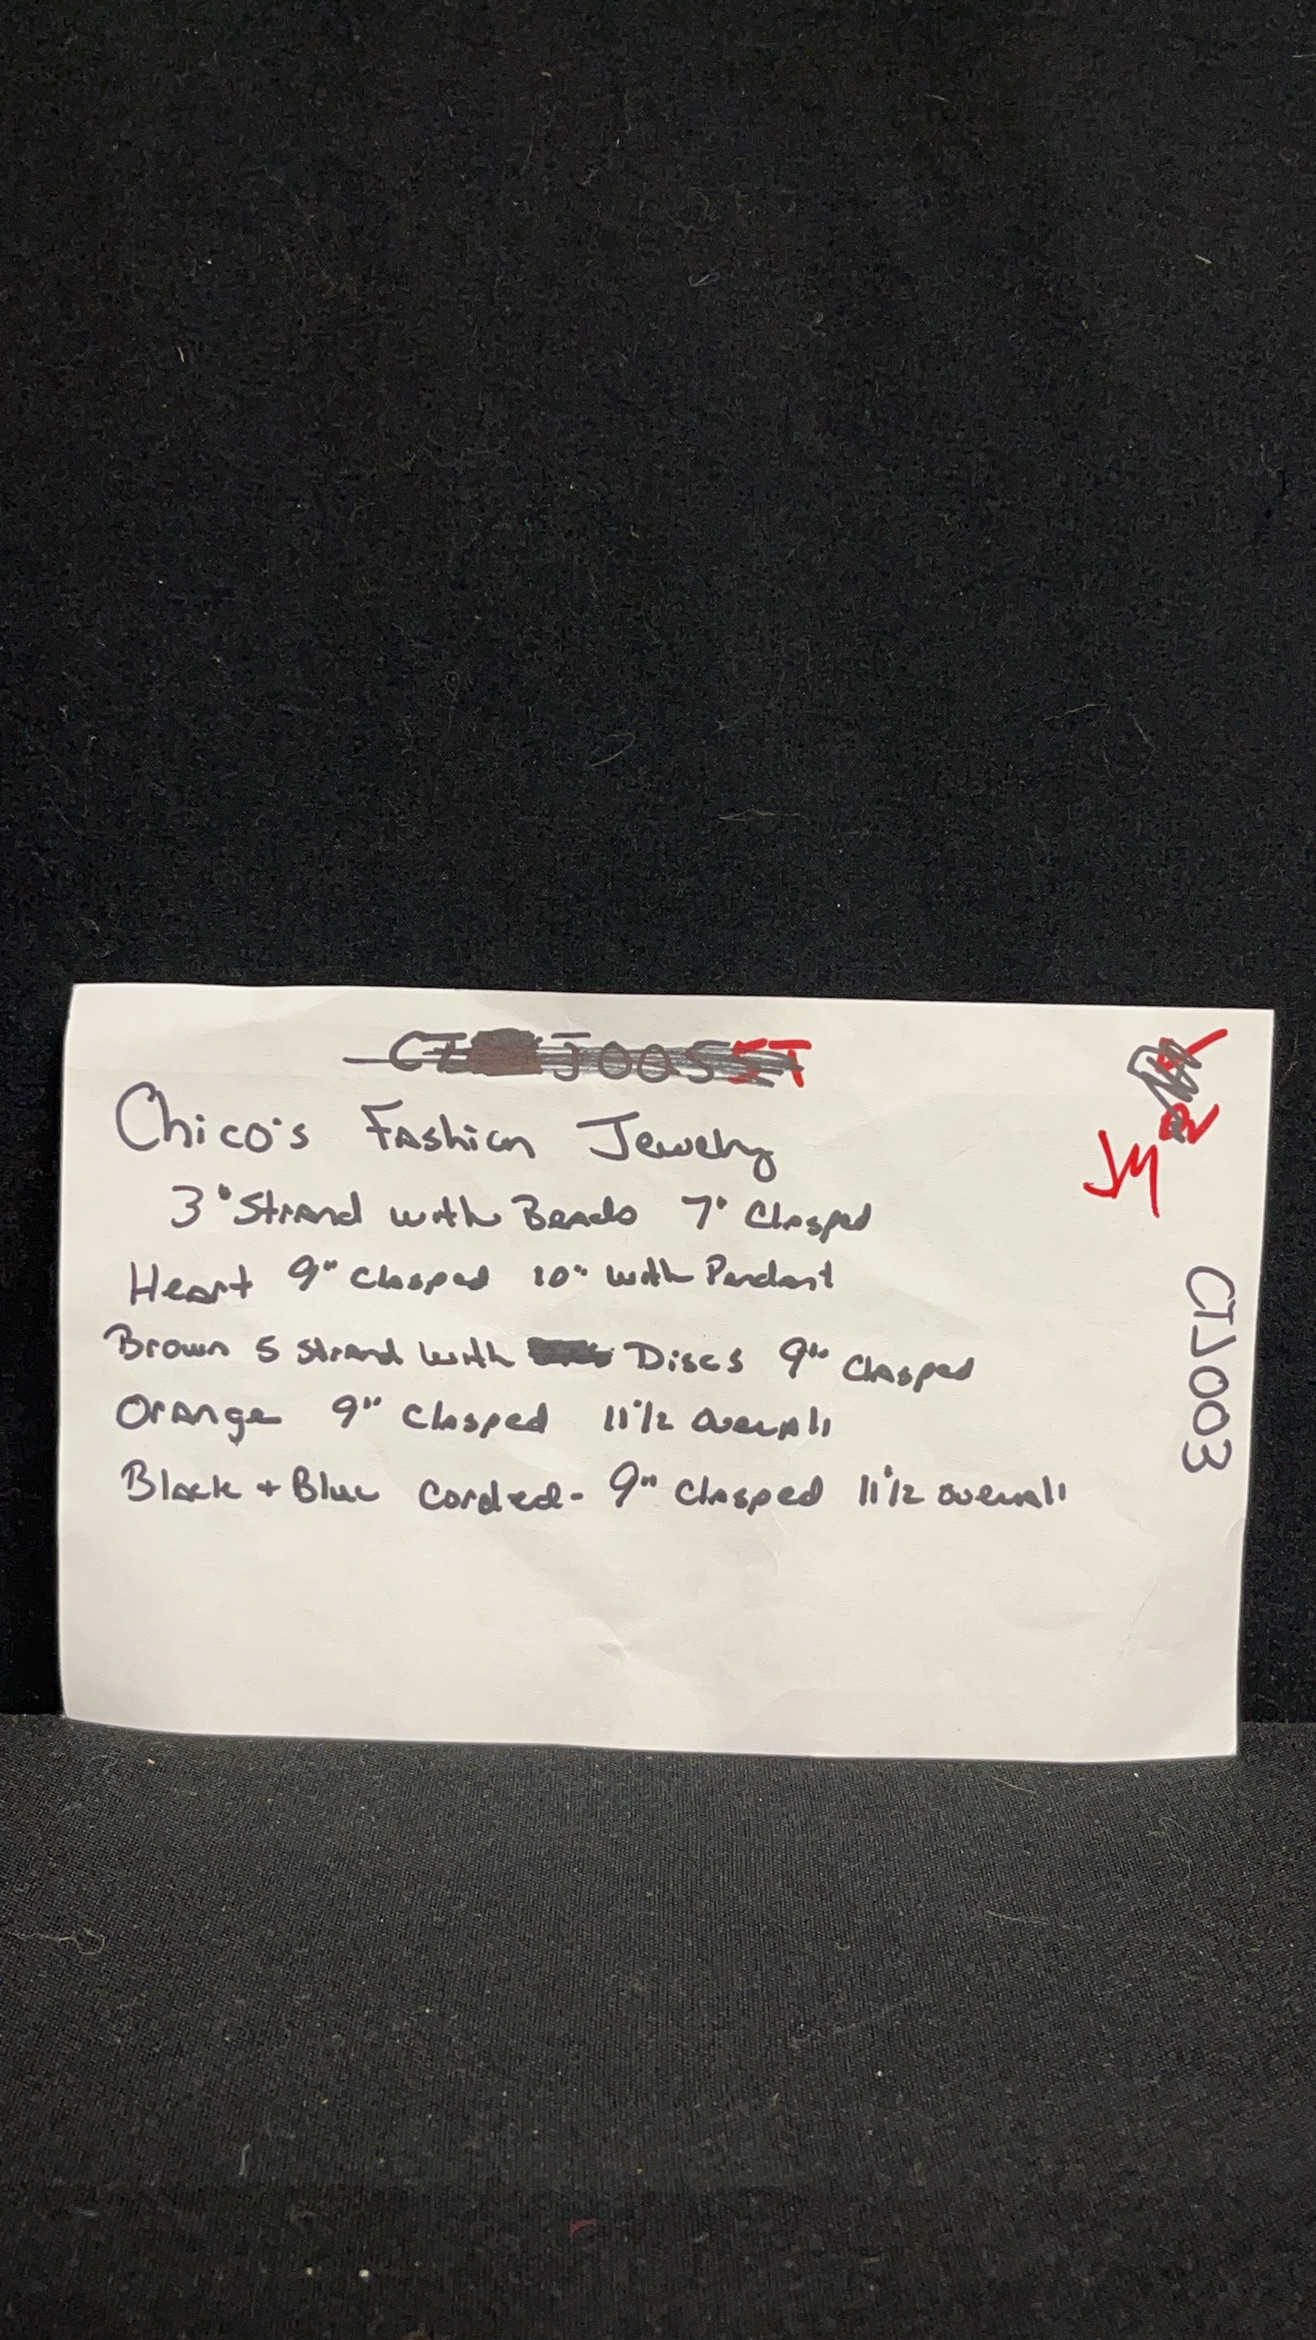 Chico's Fashion Jewelry
3" Strand with Beads 7" Clasped
Heart 9" Clasped 10" with Pendant
Brown 5 Strand with Discs 9" Clasped
Orange 9" Clasped 11 1/2 overall
Black + Blue Corded - 9" Clasped 11 1/2 overall
JM
CTJ003